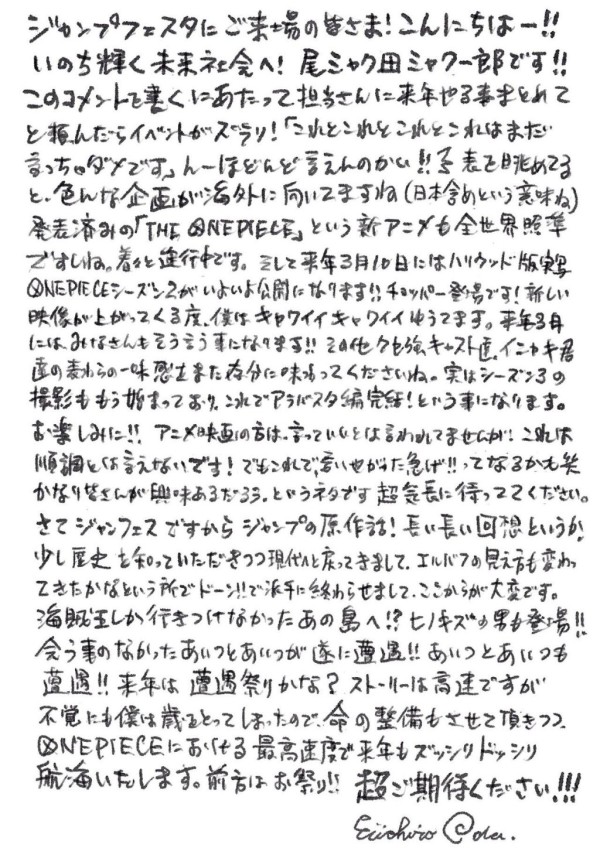 ジャンプフェスタにご来場の皆さま!こんにちはー!!
いのち輝く未来社会へ! 尾ミャク田ミャク一郎です!!
このコメントを書くにあたって担当さんに来年やる事まとめて
と頼んだらイベントがズラリ!「これとこれとこれとこれはまだ
言っちゃダメです」んーほどんど言えんのかい!!予表を眺めてる
と、色んな企画が海外に向いてますね(日本含めという意味ね)
発表済みの「THE ONEPIECE」という新アニメも全世界照準
ですしね。着々と進行中です。そして来年3月10日にはハリウッド版実写
ONEPIECEシーズン2がいよいよ公開になります!!チョッパー登場です!新しい
映像が上がってくる度、僕はキャワイイキャワイイゆうてます。来年3月
には、みなさんもそう言う事になります!! その他クセ強キャスト達、イニャキ君
達の麦わらの一味感もまた存分に味わってくださいね。実はシーズン3の
撮影ももう始まっており、これでアラバスタ編完結!という事になります。
お楽しみに!! アニメ映画の方は、言っていいとは言われてませんが! これは
順調とは言えないです!でもこれで、言いやがった急げ!!ってなるかも笑
かなり皆さんが興味あるだろう、というネタです 超気長に待っててください。
さてジャンフェスですからジャンプの原作話!長い長い回想というか、
少し歴史を知っていただきつつ現代へと戻ってきまして、エルバフの見え方も変わっ
てきたかなという所でドーン!!で派手に終わらせまして、ここからが大変です。
海賊王しか行きつけなかったあの島へ!?ヒノキズの男も登場!!
会う事のなかったあいつとあいつが遂に遭遇!! あいつとあいつも
遭遇!! 来年は 遭遇祭りかな? ストーリーは高速ですが
不覚にも僕は歳をとってしまったので、命の整備もさせて頂きつつ、
ONEPIECEにおける最高速度で来年もズッシリドッシリ
航海いたします。前方はお祭り!! 超ご期待ください!!!
Eiichiro Oda.